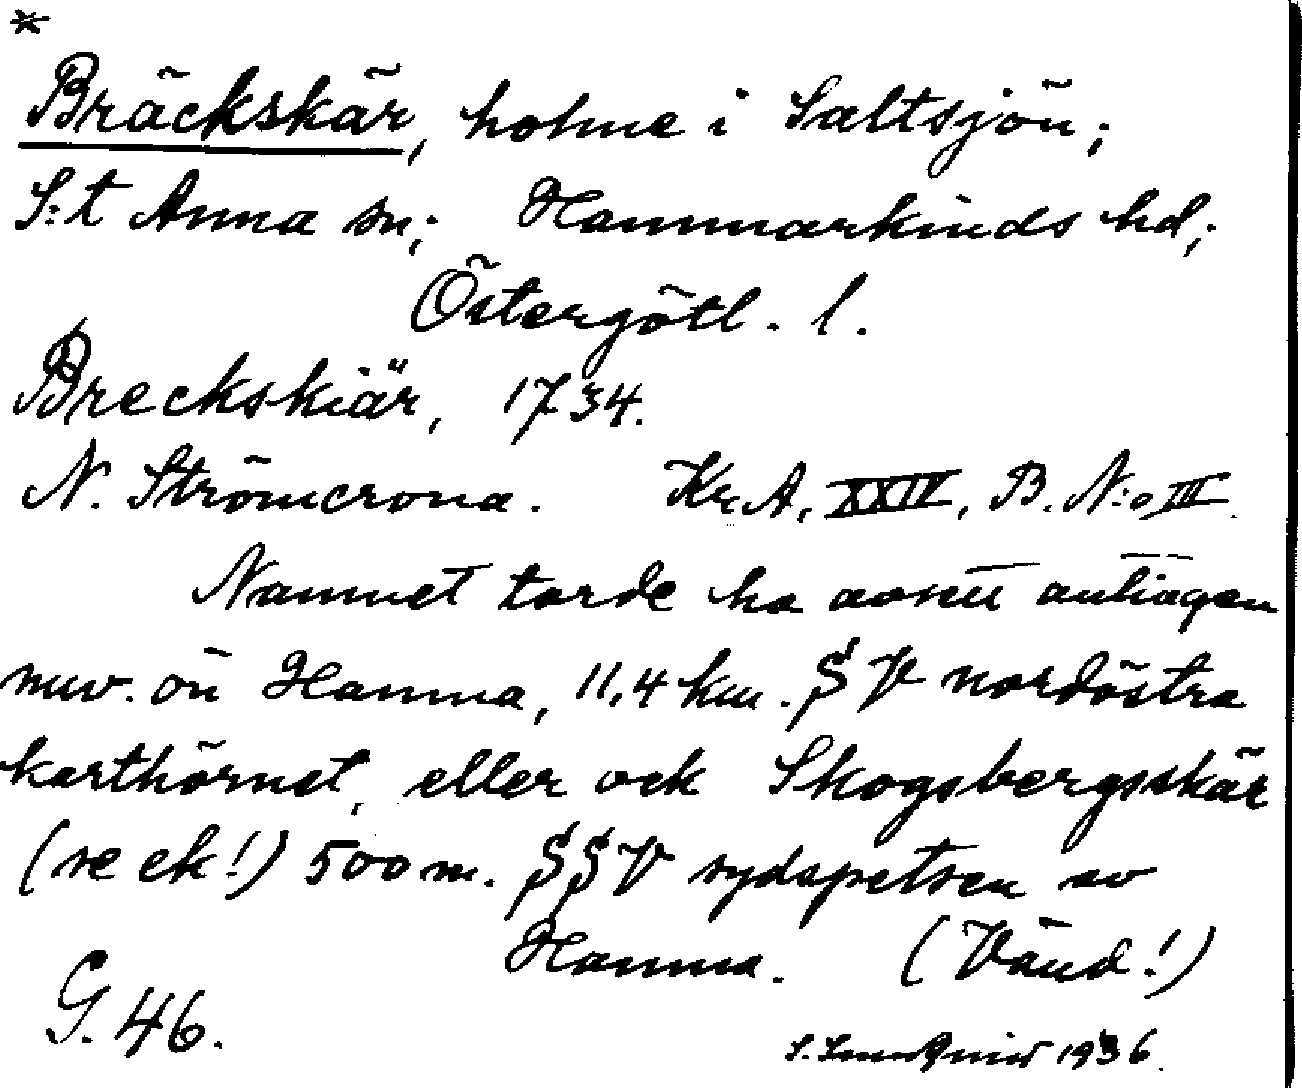 *
Bräckskär, holme i Saltsjön;
S:t Anna sn; Hammarkinds hd;
Östergötl. l.
Breckskiär, 1734.
N. Strömcrona. Kr. A, XXIV, B. N:o III.
Namnet torde ha avsett antingen
nuv. ön Hamna, 11,4 km. S V nordöstra
karthörnet, eller ock Skogsbergsskär
(se ek!) 500 m. S S V sydspetsen av
Hamna. (Vänd!)
G. 46.
1936.